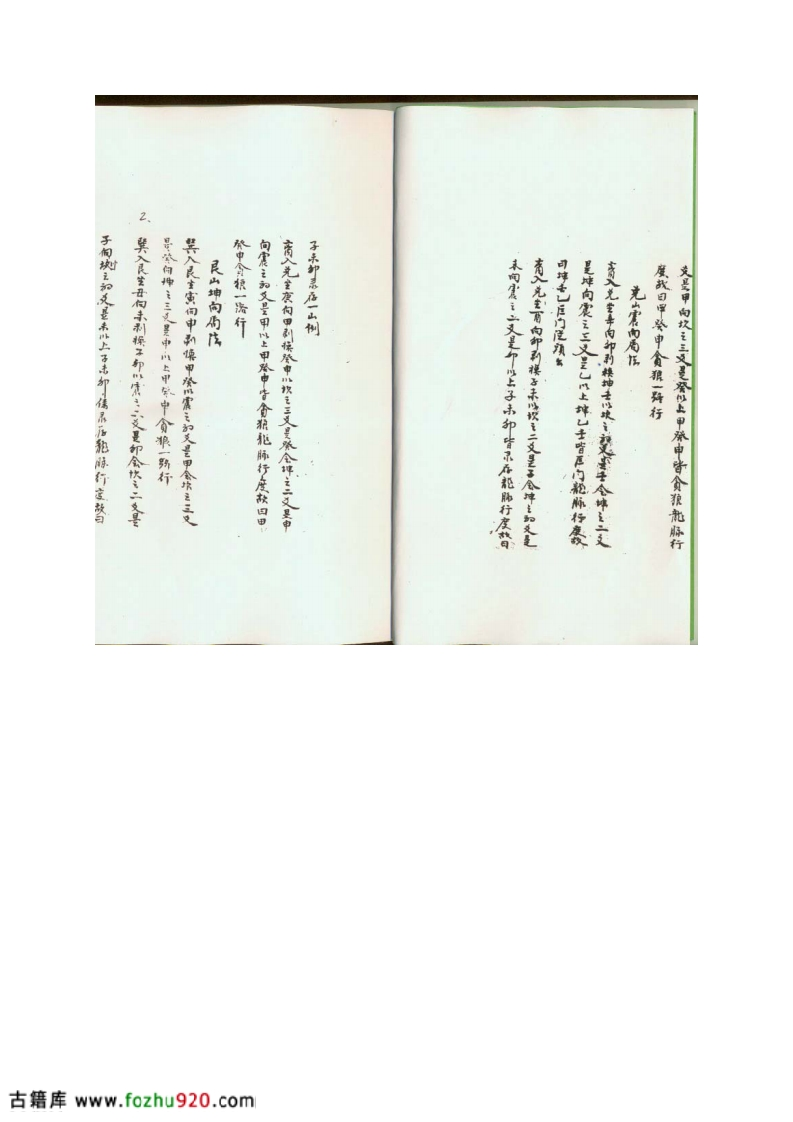 爻是甲向坎之三爻是癸以上甲癸申皆貪狼龍脉行
度故曰甲癸申貪狼一路行
兌山震向局法
入兌坐辛向卯剥換坤壬以坎之是壬合坤之二爻
是坤向震之三爻是乙以上坤乙壬皆巨門龍脉行度故
曰坤壬乙巨門從頭出
入兌坐酉向卯剥換子未以坎之二爻是子合坤之初爻是
未向震之二爻是卯以上子未卯皆彔存龍脉行度故曰
子未卯彔存一山例
入兌坐庚向甲剥換癸申以坎之三爻是癸合坤之二爻是申
向震之初爻是甲以上甲癸申皆貪狼龍脉行度故曰甲
癸申貪狼一路行
艮山坤向局法
巽入艮坐寅向申剥換甲癸以震之初爻是甲合坎之三爻
是癸向坤之三爻是申以上甲癸申貪狼一路行
2、
巽入艮坐丑向未剥換子卯以震之二爻是卯合坎之二爻是
子向坤之初爻是未以上子未卯彔存龍脉行度故曰
古籍库 www.fozhu920.com